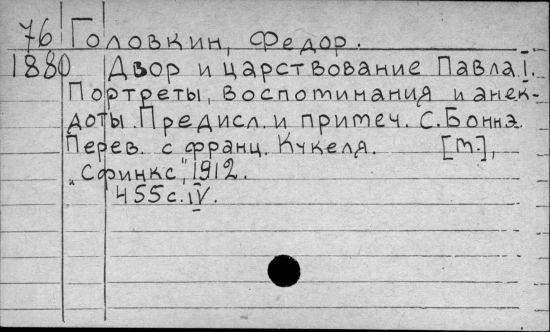 76 Головкин, Федор.
1880 Двор и царствование Павла I.
Портреты, воспоминания и анек-
доты. Предисл. и примеч. С. Бонна.
Перев. с франц. Кукеля. [М.],
„Сфинкс", 1912.
455с. IV.